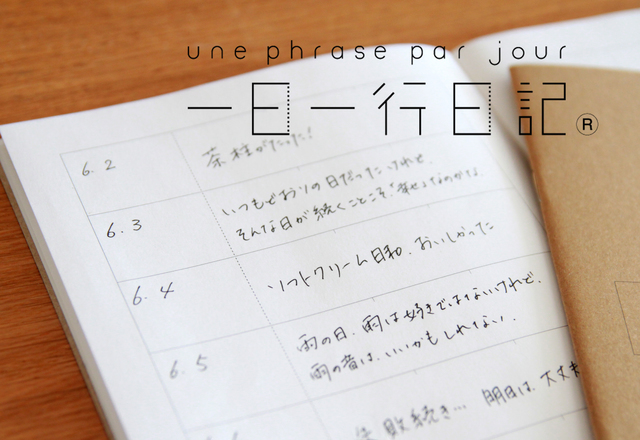 une phrase par jour
一日一行日記®
6.2
茶柱がたった!
6.3
いつもどおりの日だったけれど、
そんな日が続くことこそ「幸せ」なのかな
6.4
ソフトクリーム日和、おいしかった
6.5
雨の日、雨は好きではないけれど、
雨の音は、いいかもしれない。
失敗続き… 明日は、大丈夫